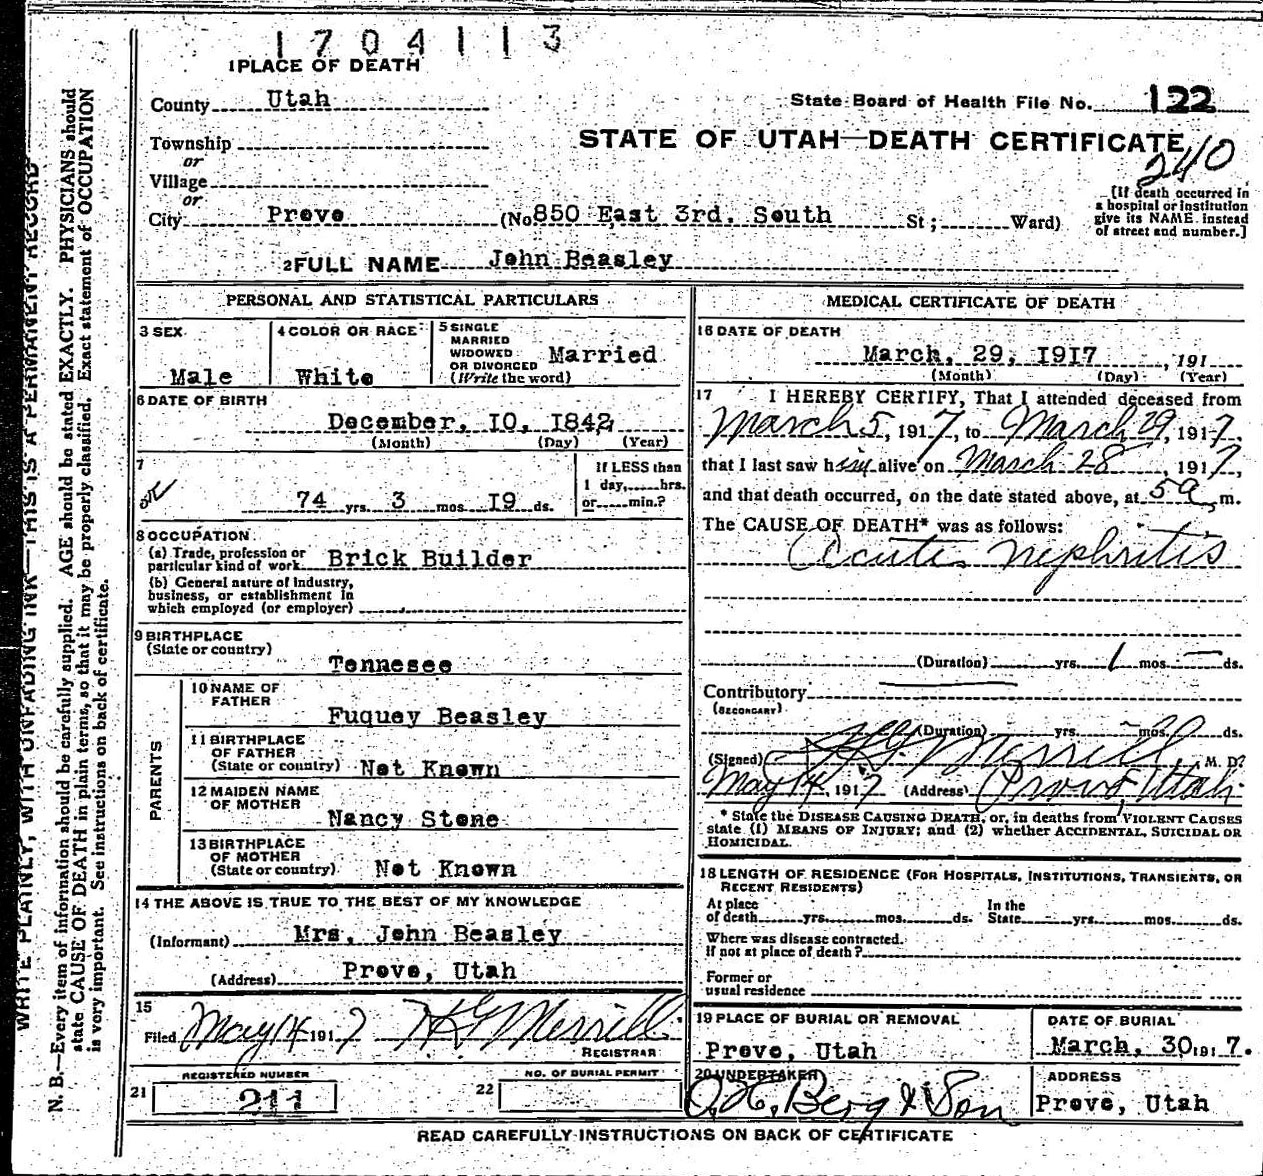 1704113
1 PLACE OF DEATH
County Utah
State Board of Health File No. 122
Township
STATE OF UTAH—DEATH CERTIFICATE
or
240
Village
or
City Provo (No 850 East 3rd. South St; Ward)
[If death occurred in
a hospital or institution
give its NAME instead
of street and number.]
2 FULL NAME John Beasley
PERSONAL AND STATISTICAL PARTICULARS
3 SEX
Male
4 COLOR OR RACE
White
5 SINGLE
MARRIED
WIDOWED
OR DIVORCED
(Write the word)
Married
6 DATE OF BIRTH
December, 10, 1842
(Month) (Day) (Year)
7
74 yrs. 3 mos. 19 ds.
If LESS than
1 day, hrs.
or min.?
8 OCCUPATION
(a) Trade, profession or
particular kind of work Brick Builder
(b) General nature of industry,
business, or establishment in
which employed (or employer)
9 BIRTHPLACE
(State or country)
Tennesee
PARENTS
10 NAME OF
FATHER
Fuquey Beasley
11 BIRTHPLACE
OF FATHER
(State or country) Not Known
12 MAIDEN NAME
OF MOTHER
Nancy Stone
13 BIRTHPLACE
OF MOTHER
(State or country) Not Known
14 THE ABOVE IS TRUE TO THE BEST OF MY KNOWLEDGE
(Informant) Mrs. John Beasley
(Address) Provo, Utah
15
Filed May 14 1917 H G Merrill
REGISTRAR
21
REGISTERED NUMBER
211
22
NO. OF BURIAL PERMIT
MEDICAL CERTIFICATE OF DEATH
16 DATE OF DEATH
March, 29, 1917, 191
(Month) (Day) (Year)
17 I HEREBY CERTIFY, That I attended deceased from
March 5, 1917, to March 29, 1917,
that I last saw him alive on March 28, 1917,
and that death occurred, on the date stated above, at 5 a m.
The CAUSE OF DEATH* was as follows:
Acute nephritis
(Duration) yrs. 1 mos. — ds.
Contributory
(SECONDARY)
(Duration) yrs. mos. ds.
(Signed) H G Merrill, M. D?
May 14, 1917 (Address) Provo, Utah
* State the DISEASE CAUSING DEATH, or, in deaths from VIOLENT CAUSES
state (1) MEANS OF INJURY; and (2) whether ACCIDENTAL, SUICIDAL OR
HOMICIDAL.
18 LENGTH OF RESIDENCE (FOR HOSPITALS, INSTITUTIONS, TRANSIENTS, OR
RECENT RESIDENTS)
At place
of death yrs. mos. ds.
In the
State yrs. mos. ds.
Where was disease contracted.
If not at place of death?
Former or
usual residence
19 PLACE OF BURIAL OR REMOVAL
Provo, Utah
DATE OF BURIAL
March, 30 1917.
20 UNDERTAKER
O. H. Berg & Son
ADDRESS
Provo, Utah
READ CAREFULLY INSTRUCTIONS ON BACK OF CERTIFICATE
WRITE PLAINLY, WITH UNFADING INK—THIS IS A PERMANENT RECORD
N. B.—Every item of information should be carefully supplied. AGE should be stated EXACTLY. PHYSICIANS should
state CAUSE OF DEATH in plain terms, so that it may be properly classified. Exact statement of OCCUPATION
is very important. See instructions on back of certificate.